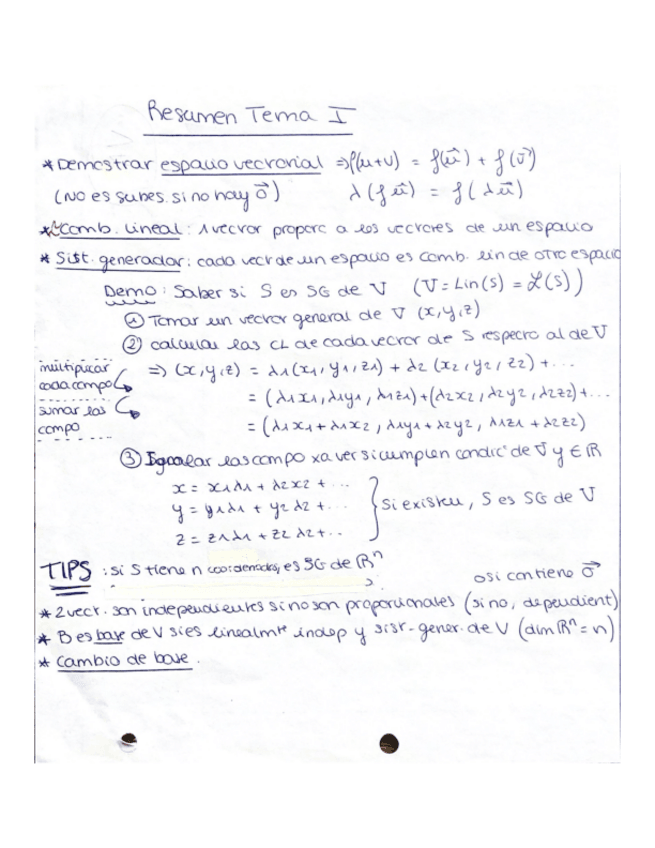 Resumen Tema I
* Demostrar espacio vectorial ⇒ f(u+v) = f(u⃗) + f(v⃗)
(No es subes. si no hay 0⃗) λ(f u⃗) = f(λu⃗)
* Comb. Lineal: 1 vector proporc a los vectores de un espacio
* Sist. generador: cada vect de un espacio es comb. lin de otro espacio
Demo: Saber si S es SG de V (V = Lin(S) = ℒ(S))
① Tomar un vector general de V (x,y,z)
② calcular las CL de cada vector de S respecto al de V
multiplicar cada compo ⇒ (x,y,z) = λ1(x1, y1, z1) + λ2 (x2, y2, z2) + ...
= (λ1x1, λ1y1, λ1z1) + (λ2x2, λ2y2, λ2z2) + ...
sumar las compo = (λ1x1 + λ1x2, λ1y1 + λ2y2, λ1z1 + λ2z2)
③ Igualar las compo xa ver si cumplen condic° de V y ∈ ℝ
x = x1λ1 + λ2x2 + ...
y = y1λ1 + y2λ2 + ... } si existen, S es SG de V
z = z1λ1 + z2λ2 + ...
TIPS: si S tiene n coordenadas, es SG de ℝⁿ
o si contiene 0⃗
* 2 vect. son independientes si no son proporcionales (si no, dependient)
* B es base de V si es linealmte indep y sist-gener. de V (dim ℝⁿ = n)
* Cambio de base.